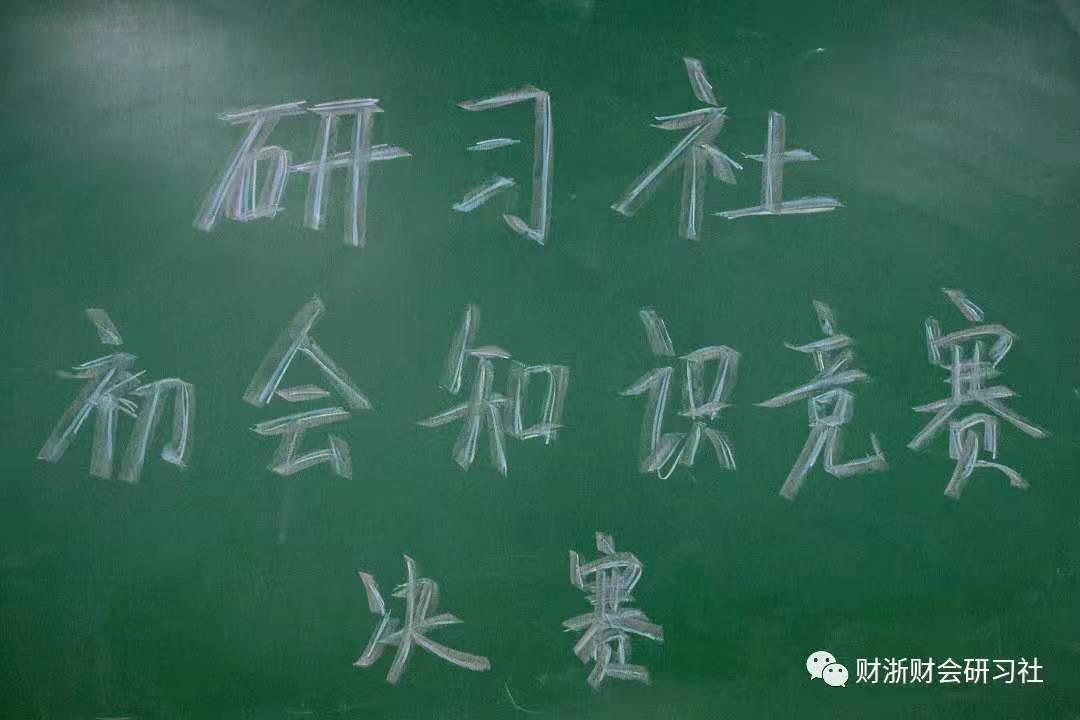 研习社
初会知识竞赛
决赛
财浙财会研习社